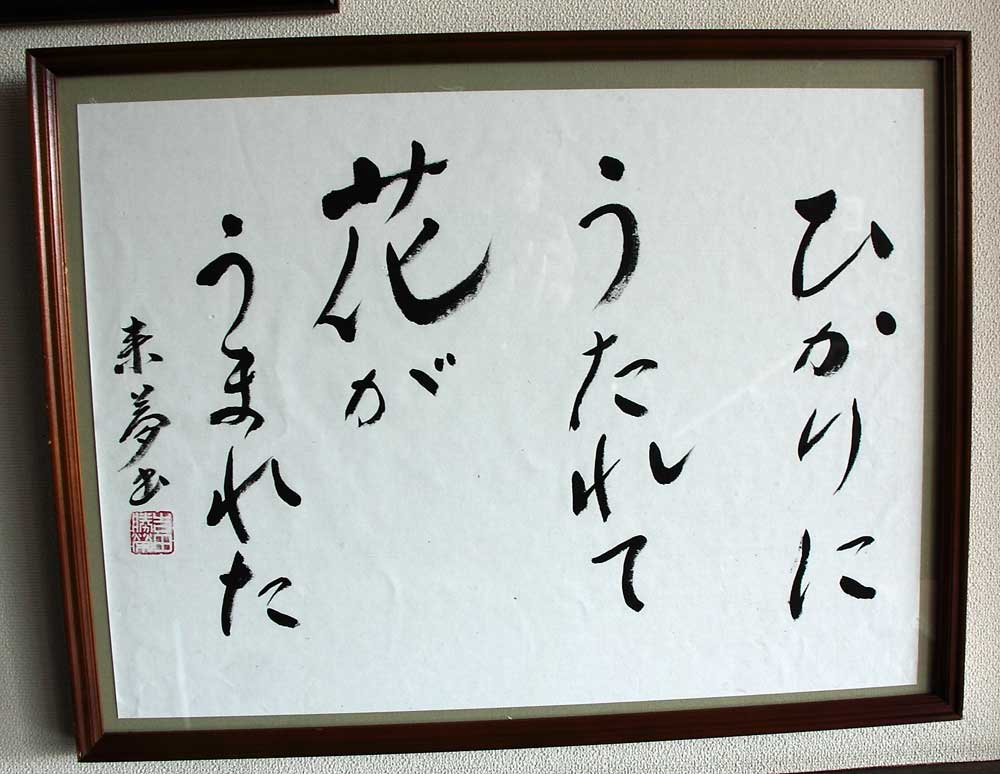 ひかりに
うたれて
花が
うまれた
来夢書